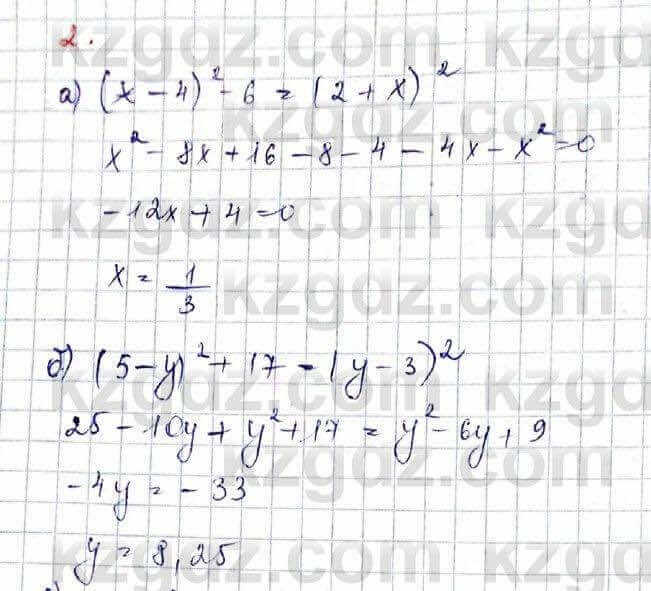 2.
а) (x - 4)² - 6 = (2 + x)²
x² - 8x + 16 - 8 - 4 - 4x - x² = 0
- 12x + 4 = 0
x = 1/3
б) (5 - y)² + 17 = (y - 3)²
25 - 10y + y² + 17 = y² - 6y + 9
- 4y = - 33
y = 8,25
kzgdz.com